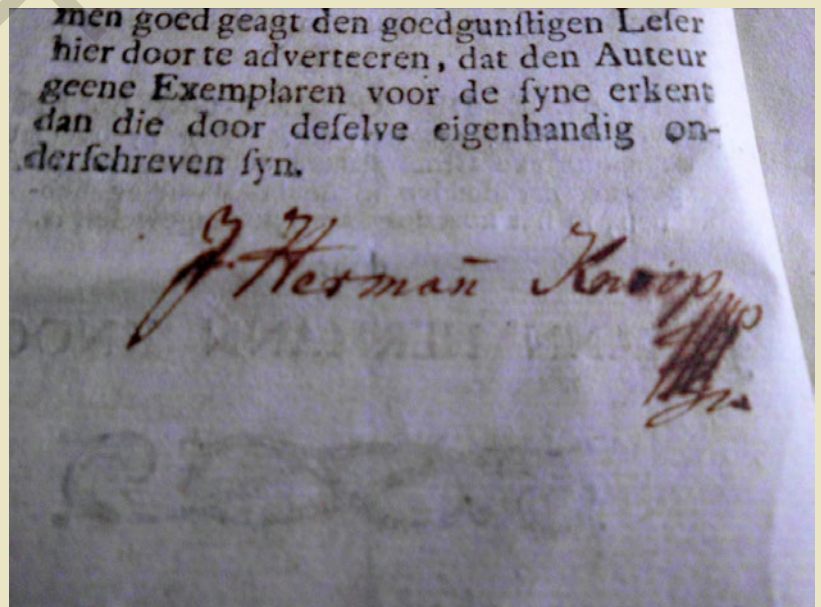 men goed geagt den goedgunſtigen Leſer
hier door te adverteeren, dat den Auteur
geene Exemplaren voor de ſyne erkent
dan die door deſelve eigenhandig on-
derſchreven ſyn.
J. Herman̄ Knoop